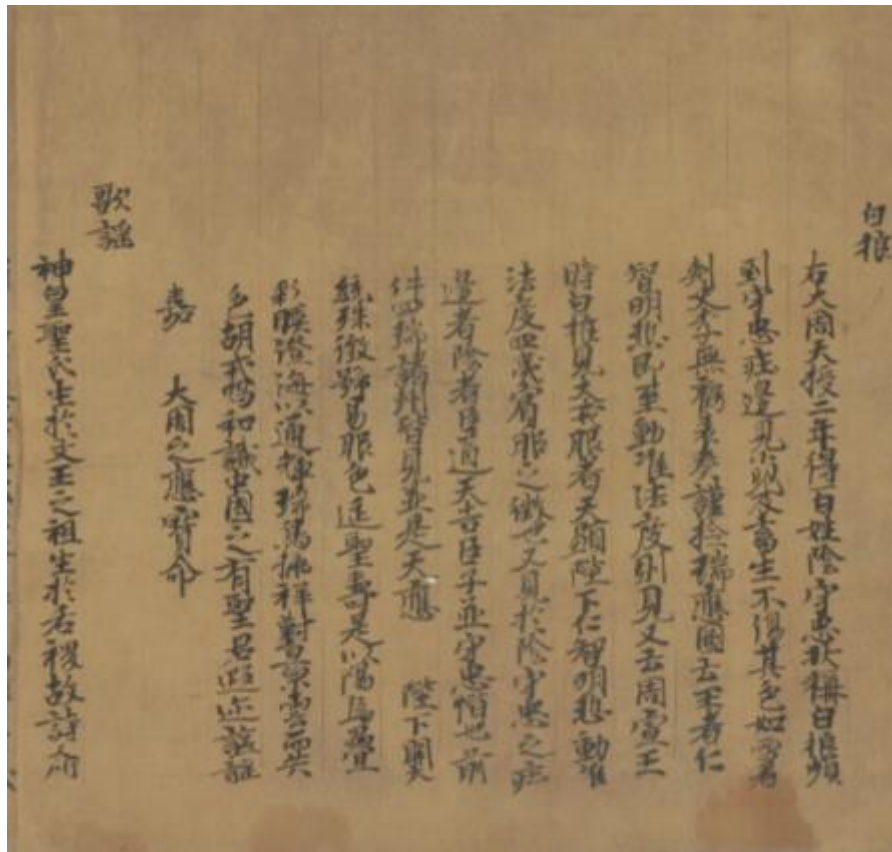 白狼
右大周天授二年得百姓陰守忠狀稱白狼頻
到守忠庄邊見小兒及畜生不傷其色如雪者
刺史李無虧表奏謹檢瑞應圖云王者仁
智明悊即至動准法度則見又云周宣王
時白狼見犬戎服者天顯陛下仁智明悊動准
法度四夷賓服之徵也又見於陰守忠之庄
邊者陰者臣道天告臣子並守忠於也前
件四瑞諸州皆見並是天應 陛下開天
統殊徽號易服色延聖壽是以陽烏疊
彩暎澄海以通輝瑞鳥摛祥對景雲而共
色胡戎唱和識中國之有聖君遐迩謳謡
嘉 大周之應寶命
歌謡
神皇聖氏生於文王之祖生於后稷故詩人所